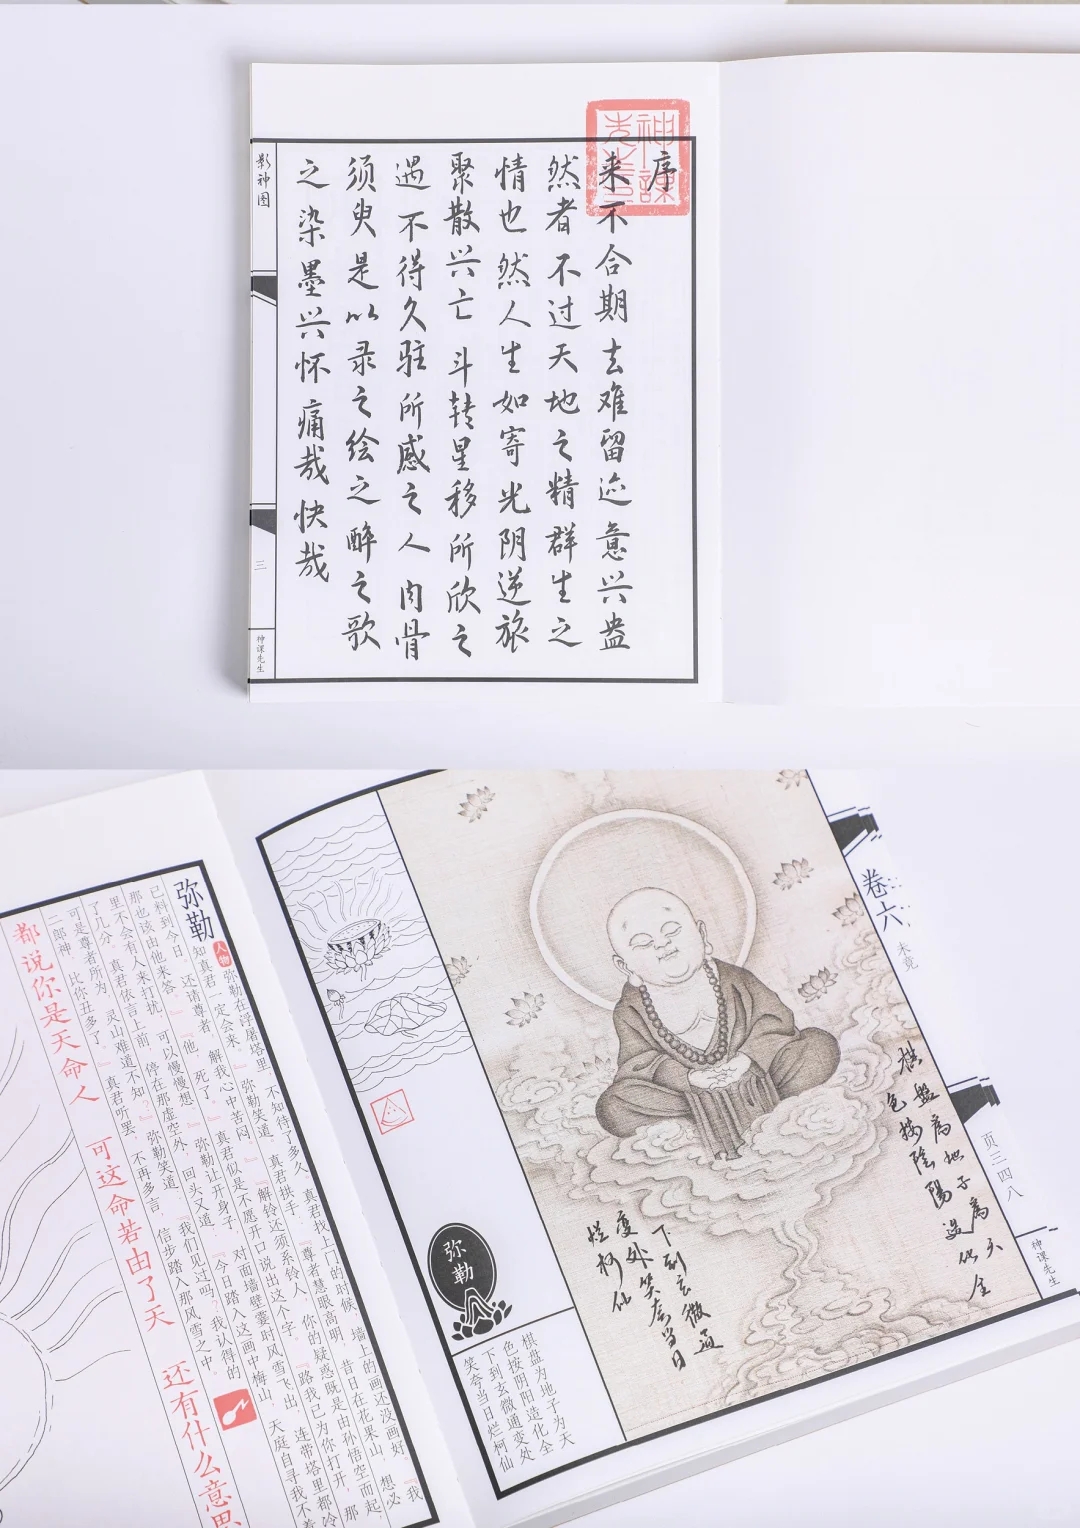 神课先生
序
来不合期去难留迹意兴盎
然者不过天地之精群生之
情也然人生如寄光阴逆旅
聚散兴亡斗转星移所欣之
遇不得久驻所感之人肉骨
须臾是以录之绘之醉之歌
之染墨兴怀痛哉快哉
影神图
三
神课先生
卷六
未竟
页三四八
神课先生
棋盘为地子为天
色按阴阳造化全
下到玄微通变处
笑夸当日烂柯仙
弥勒
棋盤為地子為天
色按陰陽造化全
下到玄微通
變处笑夸当日
烂柯仙
弥勒
人物
弥勒在浮屠塔里，不知待了多久。真君找上门的时候，墙上的画还没画好。『我
知真君一定会来。』弥勒笑道。真君拱手：『尊者慧眼高明，昔日在花果山，想必
已料到今日。还请尊者，解我心中苦闷。』『解铃还须系铃人，你的疑惑既是由孙悟空而起，那
那也该由他来答。』『他，死了。』真君似是不愿开口说出这个字。『路我已为你打开，
里不会有人来打扰，可以慢慢想。』弥勒让开身子，对面墙壁霎时风雪飞出，连带塔里都冷
了几分。真君依言上前，停在那虚空外，回头又道：『今日踏入这画中梅山，天庭自寻我不着
可是尊者所为，灵山难道不知？』弥勒笑道：『我们见过吗？我认得的
二郎神，比你丑多了。』真君听罢，不再多言，信步踏入那风雪之中。
都说你是天命人 可这命若由了天 还有什么意思